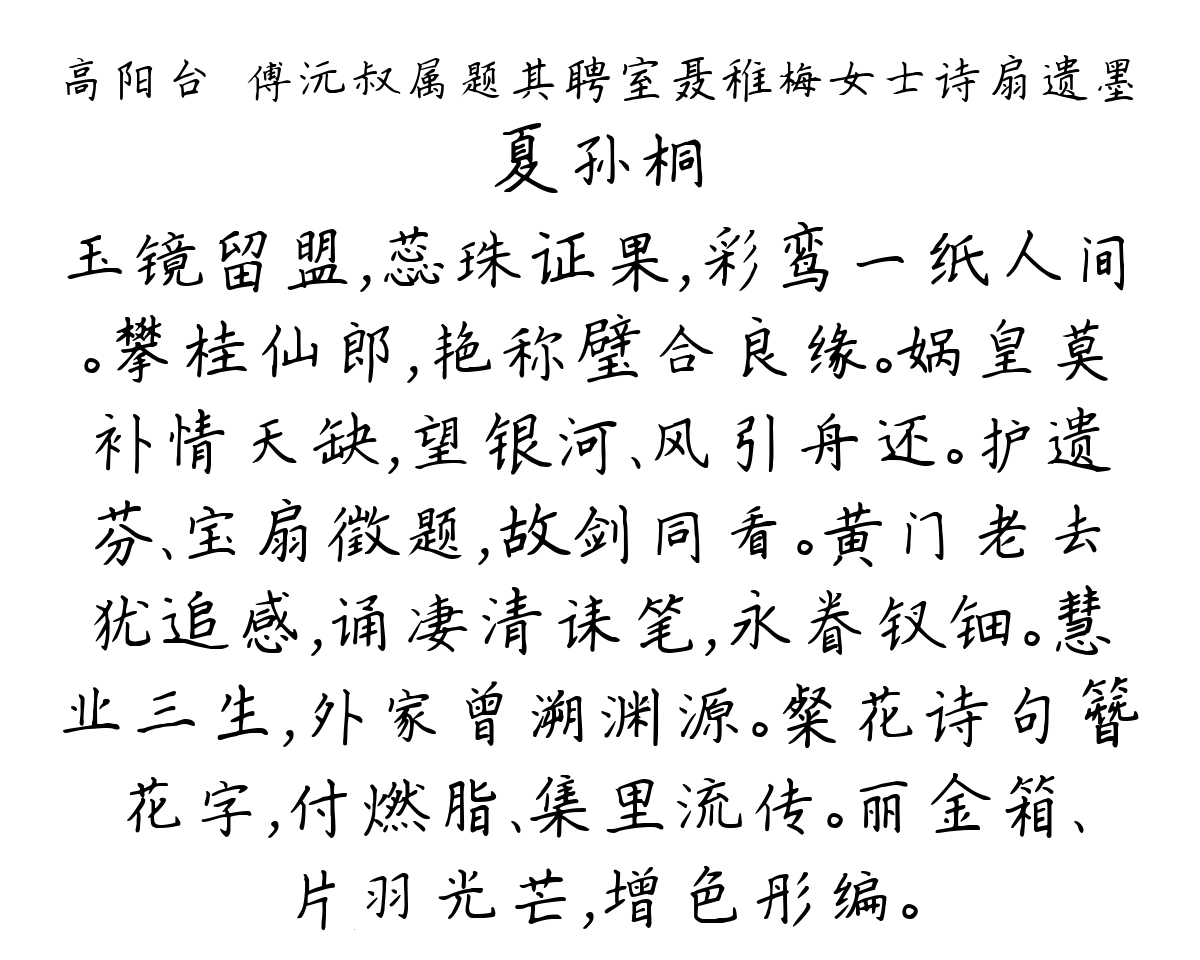 高阳台 傅沅叔属题其聘室聂稚梅女士诗扇遗墨
夏孙桐
玉镜留盟,蕊珠证果,彩鸾一纸人间
。攀桂仙郎,艳称璧合良缘。娲皇莫
补情天缺,望银河、风引舟还。护遗
芬、宝扇徵题,故剑同看。黄门老去
犹追感,诵凄清诔笔,永眷钗钿。慧
业三生,外家曾溯渊源。粲花诗句簪
花字,付燃脂、集里流传。丽金箱、
片羽光芒,增色彤编。